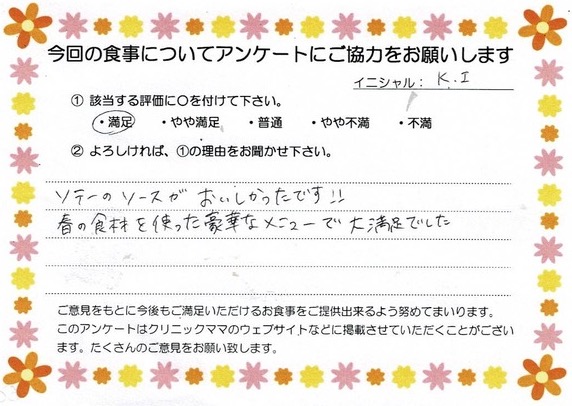 今回の食事についてアンケートにご協力をお願いします
イニシャル： K.I
① 該当する評価に〇を付けて下さい。
・満足 ・やや満足 ・普通 ・やや不満 ・不満
② よろしければ、①の理由をお聞かせ下さい。
ソテーのソースが おいしかったです!!
春の食材を使った豪華なメニューで大満足でした
ご意見をもとに今後もご満足いただけるお食事をご提供出来るよう努めてまいります。
このアンケートはクリニックママのウェブサイトなどに掲載させていただくことがござい
ます。たくさんのご意見をお願い致します。